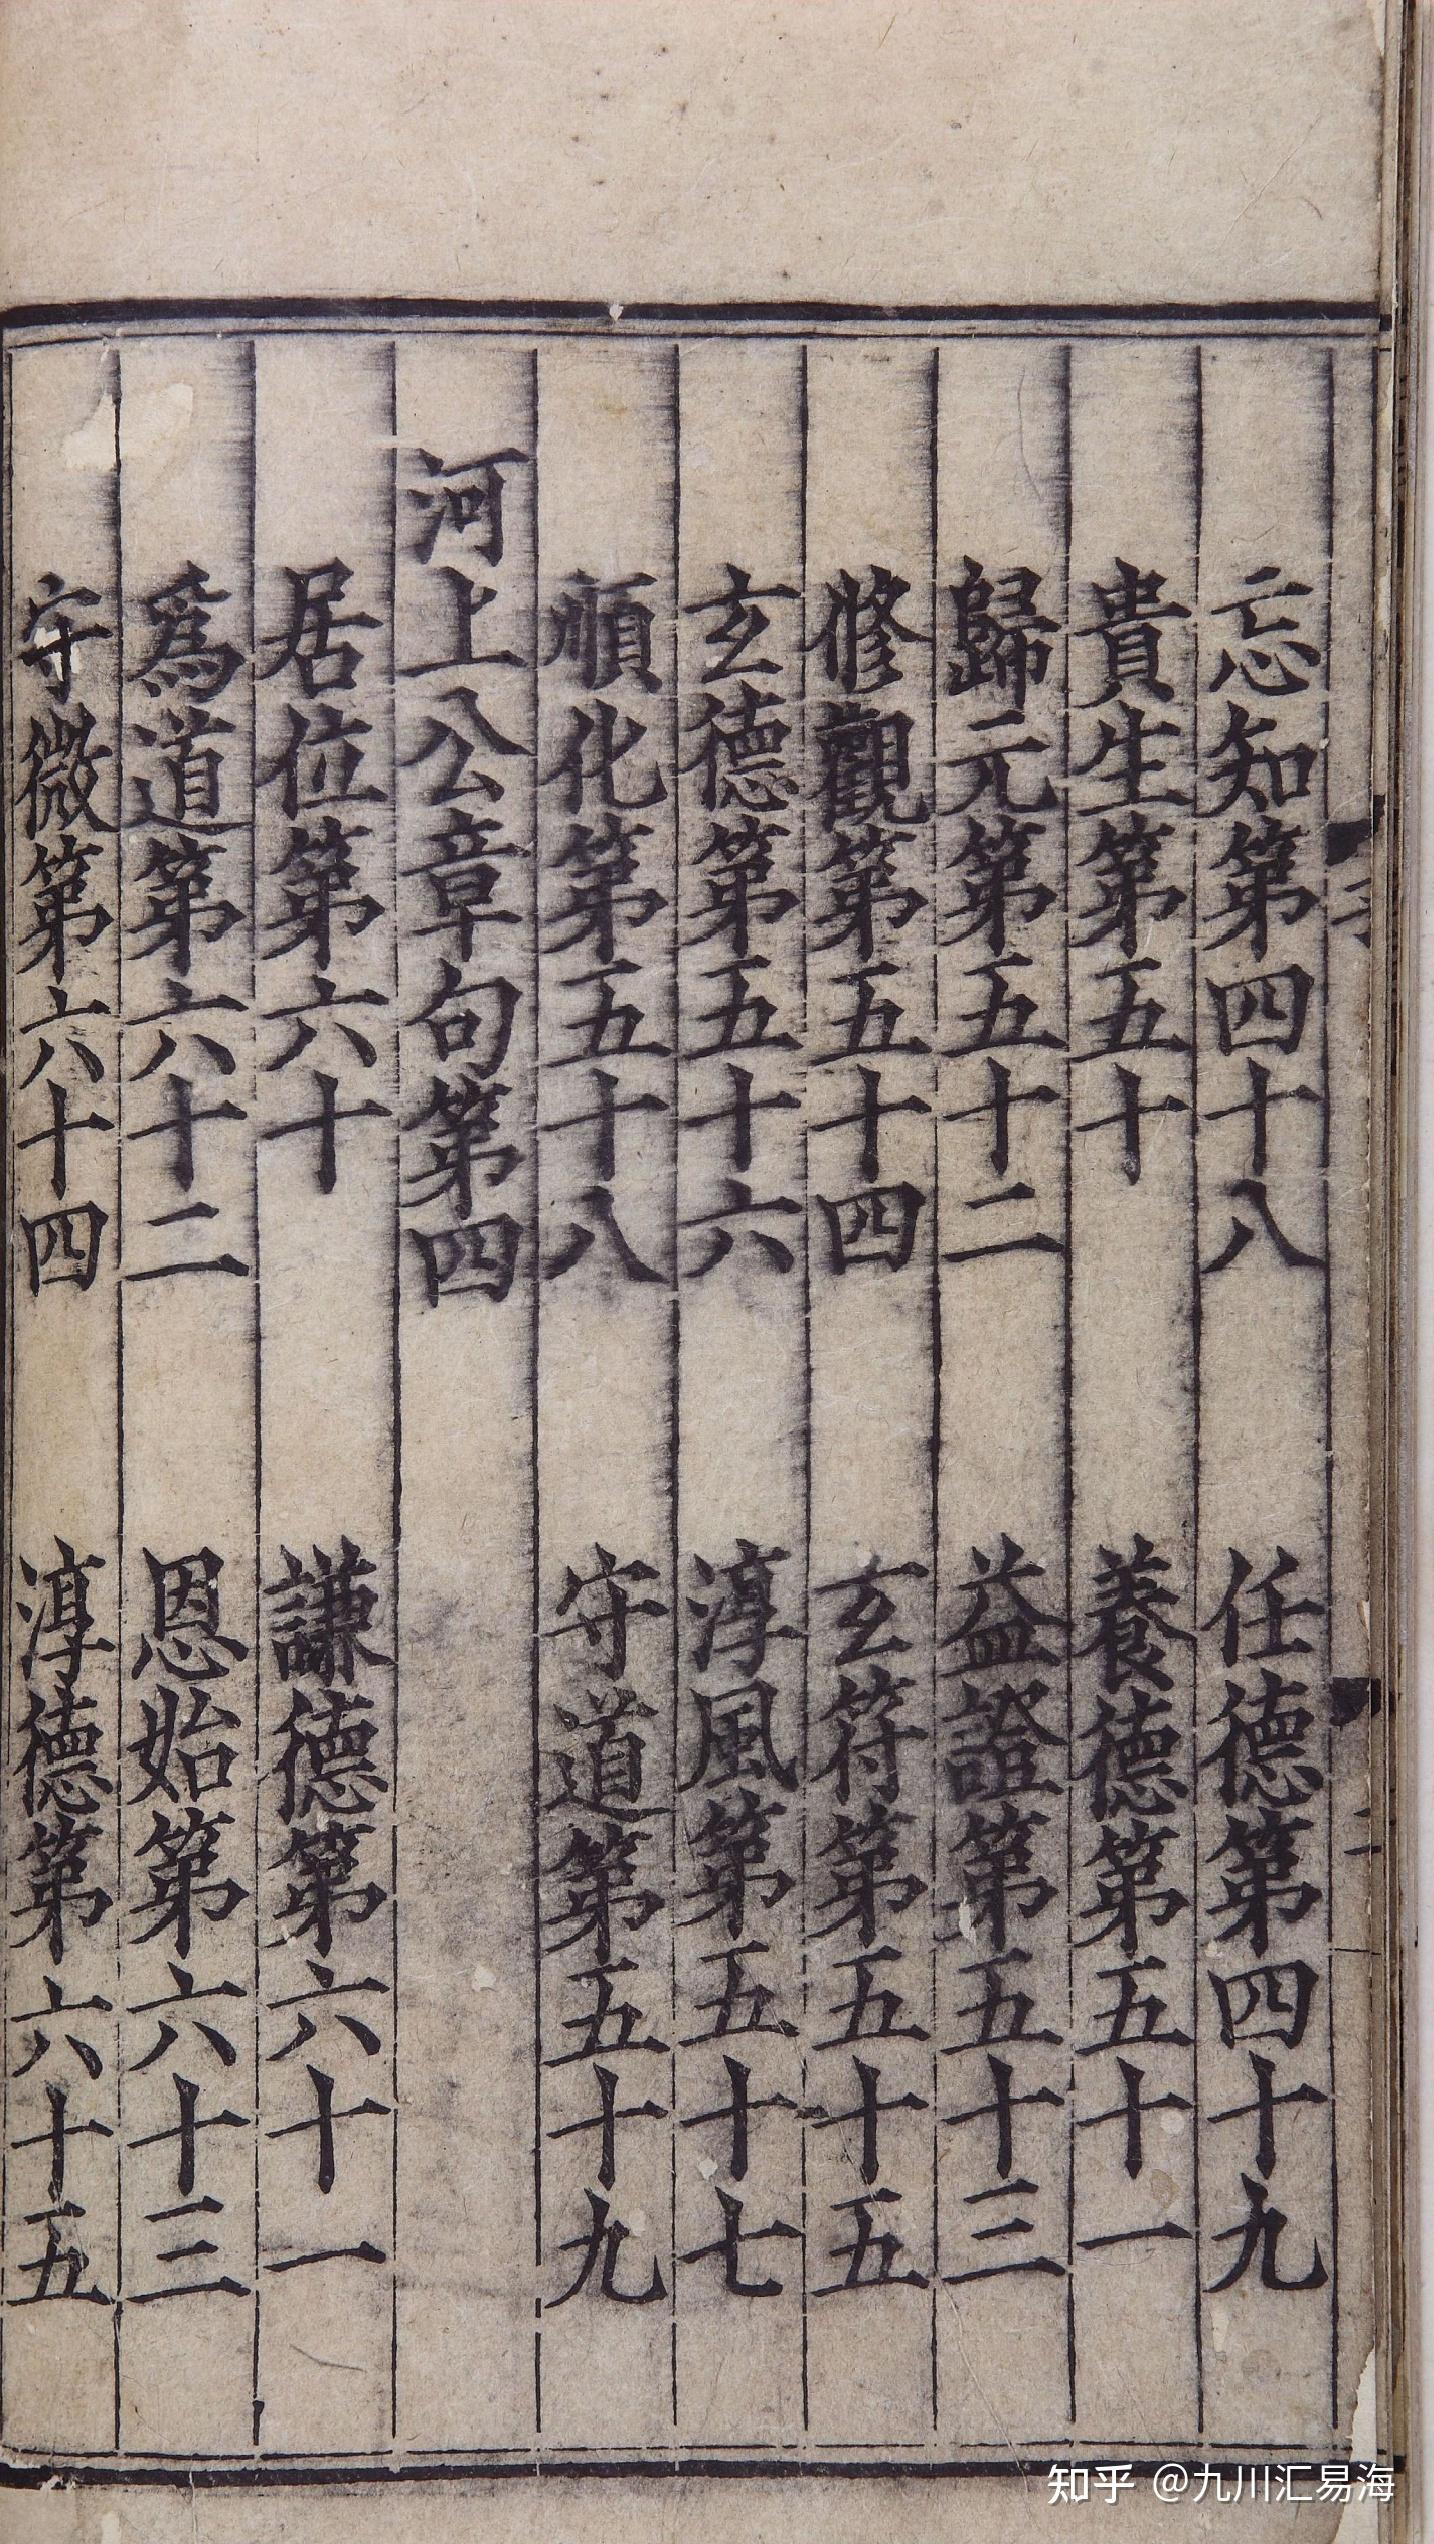 忘知第四十八 任德第四十九
貴生第五十 養德第五十一
歸元第五十二 益證第五十三
修觀第五十四 玄符第五十五
玄德第五十六 淳風第五十七
順化第五十八 守道第五十九
河上公章句第四
居位第六十 謙德第六十一
爲道第六十二 恩始第六十三
守微第六十四 淳德第六十五
知乎 @九川汇易海